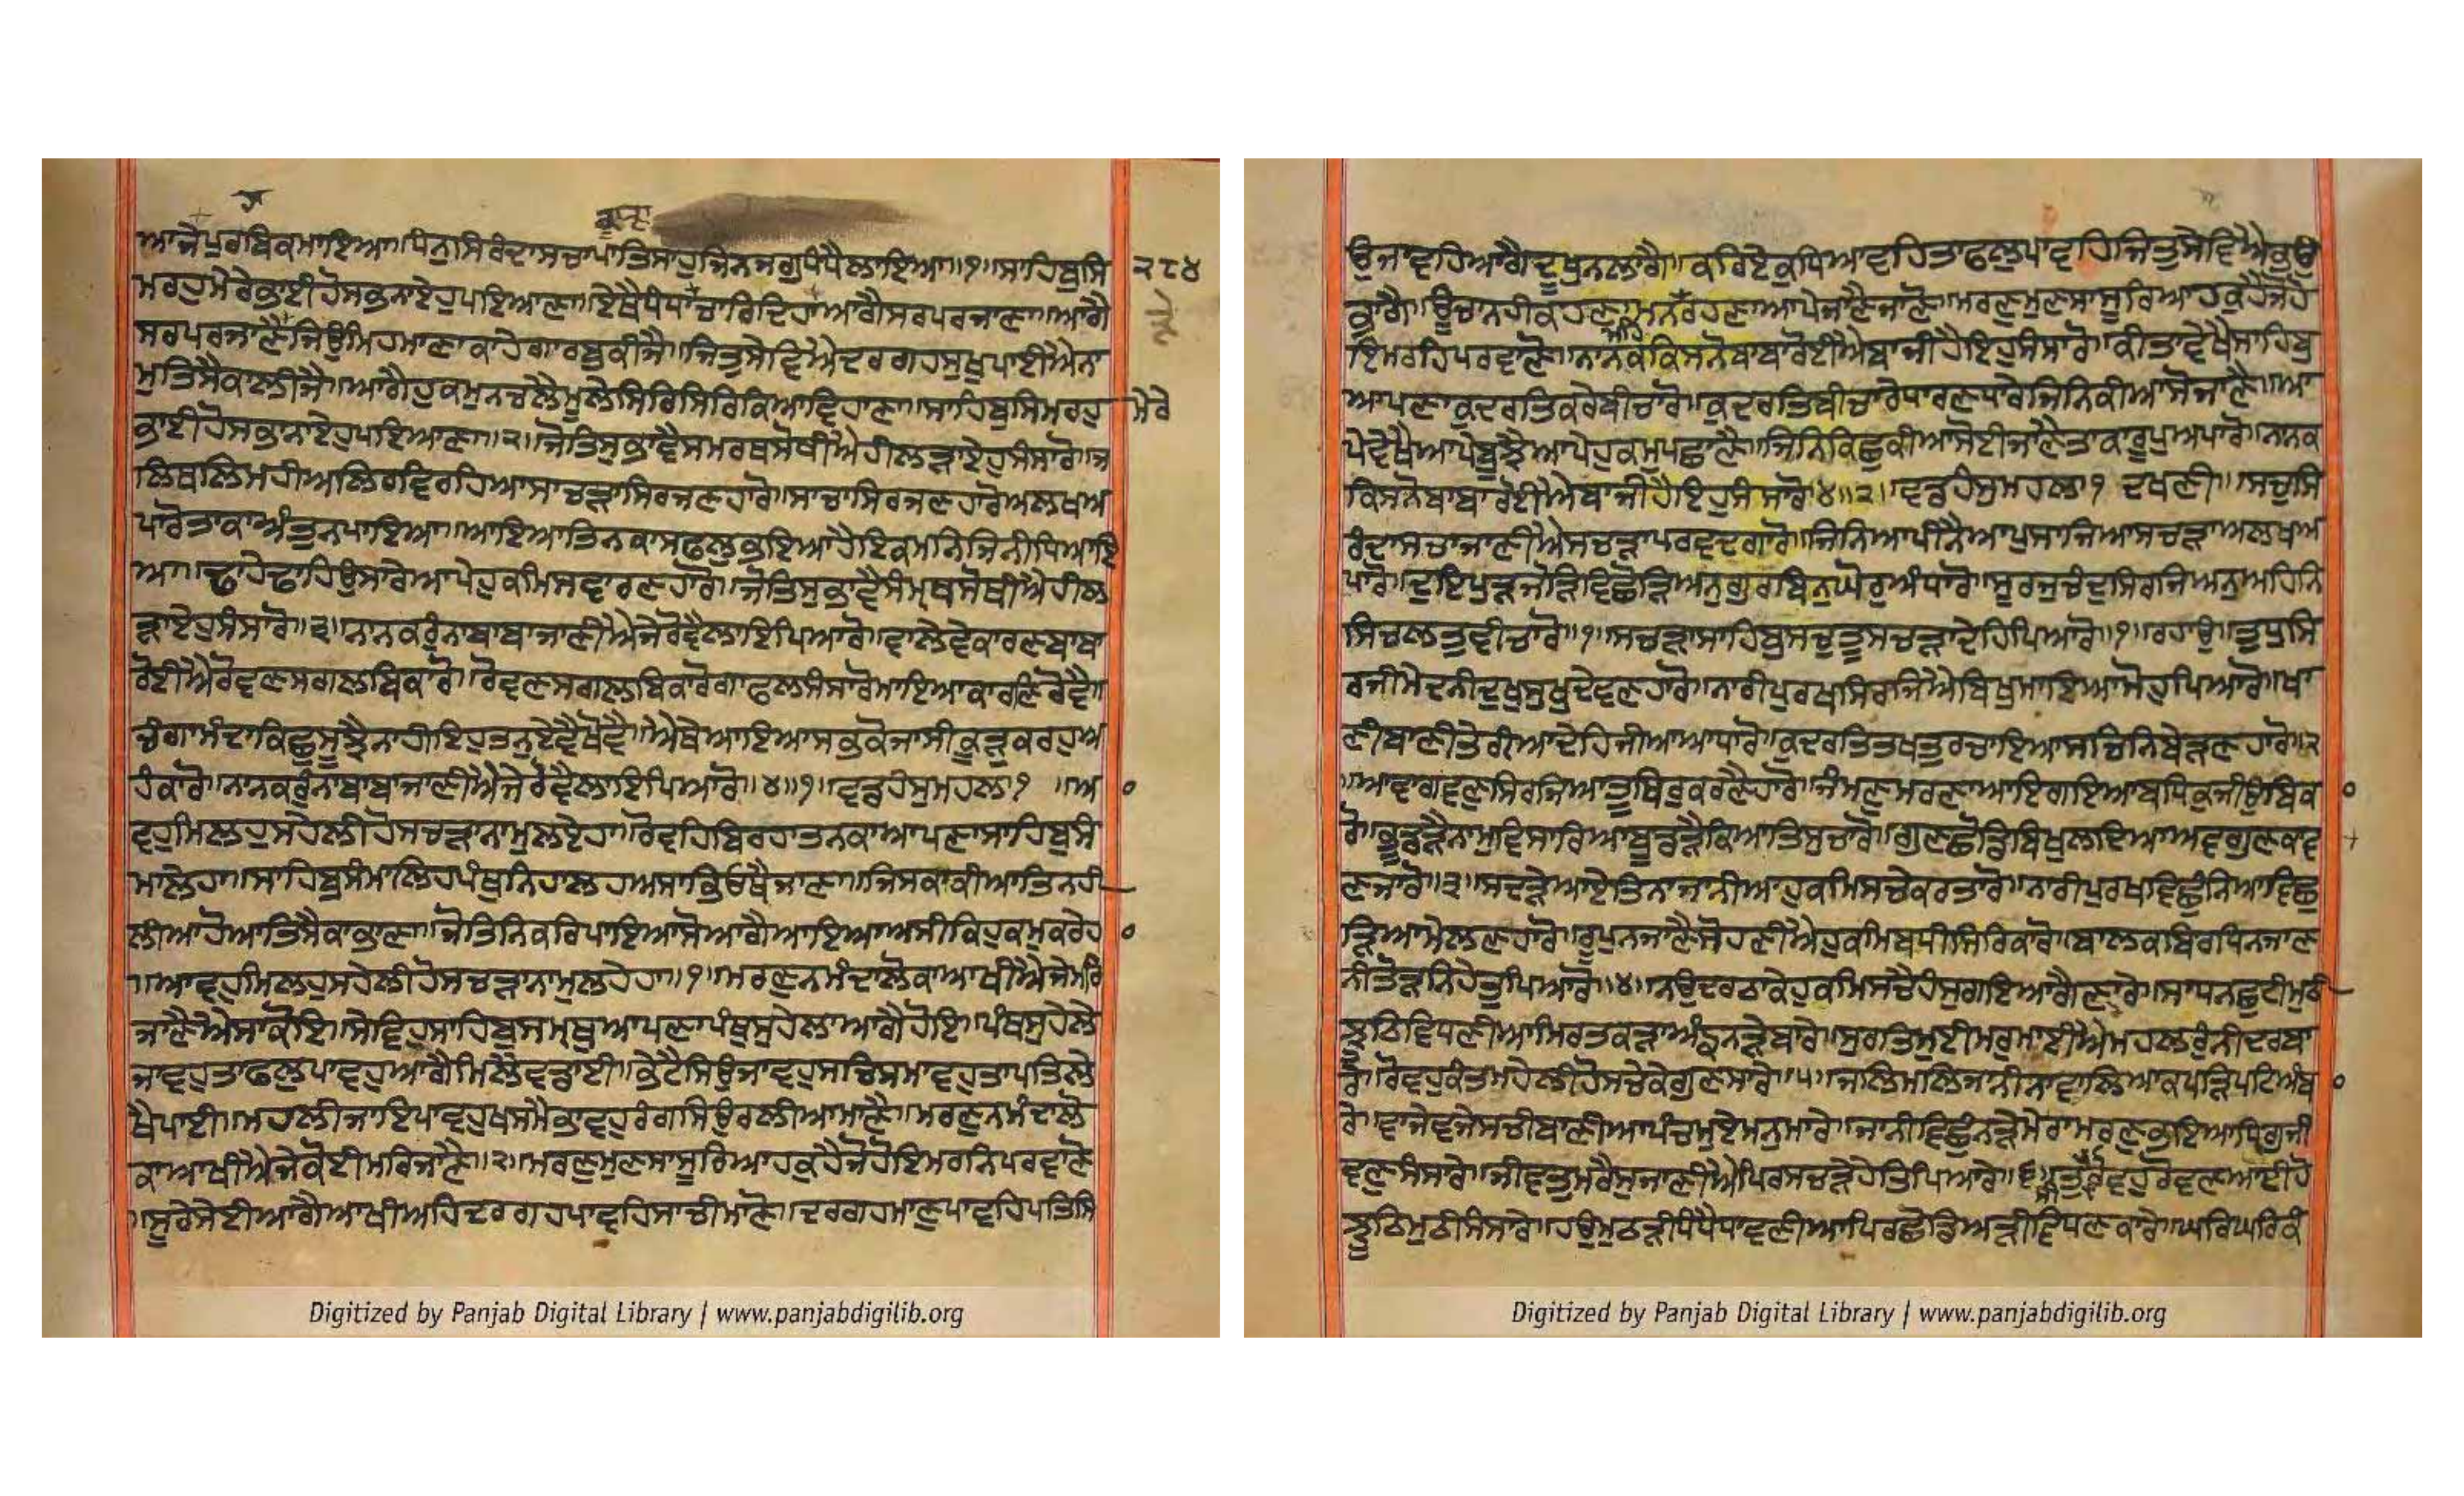 ਕਾਨਾ
ਆਜੈਪੁਰਬਿਕਮਾਇਆ॥ਧਨੁਸਿਰੰਦਾਸਚਾਪਾਤਿਸਾਹੁਜਿਨਜਗੁਧੰਧੈਲਾਇਆ॥੧॥ਸਾਹਿਬੁਸਿ
੨੮੪
ਮਰਹੁਮੇਰੇਭਾਈਹੋਸਭਨਾਏਹੁਪਇਆਣਾ॥ਏਥੈਧੰਧਾਚਾਰਿਦਿਹਾਆਗੈਸਰਪਰਜਾਣਾ॥ਆਗੈ
ਸਰਪਰਜਾਣਾਜਿਉਮਿਹਮਾਣਾਕਾਹੇਗਾਰਬੁਕੀਜੈ॥ਜਿਤੁਸੇਵਿਐਦਰਗਹਸੁਖੁਪਾਈਐਨਾ
ਮੁਤਿਸੈਕਾਲੀਜੈ॥ਆਗੈਹੁਕਮੁਨਚਲੈਮੂਲੇਸਿਰਿਸਿਰਿਕਿਆਵਿਹਾਣਾ॥ਸਾਹਿਬੁਸਿਮਰਹੁ
ਮੇਰੇ
ਭਾਈਹੋਸਭਨਾਏਹੁਪਇਆਣਾ॥੨॥ਜੋਤਿਸੁਭਾਵੈਸਮਰਥਸੋਥੀਐਹੀਲੜਾਏਹੁਸੰਸਾਰੋ॥ਜ
ਲਿਥਲਿਮਹੀਅਲਿਰਵਿਰਹਿਆਸਾਚੜਾਸਿਰਜਣਹਾਰੋ॥ਸਾਚਾਸਿਰਜਣਹਾਰੋਅਲਖਅ
ਪਾਰੋਤਾਕਾਅੰਤੁਨਪਾਇਆ॥ਆਇਆਤਿਨਕਾਸਫਲੁਭਇਆਹੈਇਕਮਨਿਜਿਨੀਧਿਆਇ
ਆ॥ਢਾਹੇਢਾਹਿਉਸਾਰੇਆਪੇਹੁਕਮਿਸਵਾਰਣਹਾਰੋ॥ਜੋਤਿਸੁਭਾਵੈਸੰਮ੍ਰਥਸੋਥੀਐਹੀਲ
ੜਾਏਹੁਸੰਸਾਰੋ॥੩॥ਨਾਨਕਰੁੰਨਾਬਾਬਾਜਾਣੀਐਜੇਰੋਵੈਲਾਇਪਿਆਰੋ॥ਵਾਲੇਵੇਕਾਰਣਬਾਬਾ
ਰੋਈਐਰੋਵਣਸਗਲਬਿਕਾਰੋ॥ਰੋਵਣਸਗਲਬਿਕਾਰੋਗਾਫਲਸੰਸਾਰੋਮਾਇਆਕਾਰਣਿਰੋਵੈ॥
ਚੰਗਾਮੰਦਾਕਿਛੁਸੂਝੈਨਾਹੀਇਹੁਤਨੁਏਵੈਖੋਵੈ॥ਐਥੇਆਇਆਸਭੁਕੋਜਾਸੀਕੂੜੁਕਰਹੁਅ
ਹੰਕਾਰੋ॥ਨਾਨਕਰੁੰਨਾਬਾਬਾਜਾਣੀਐਜੇਰੋਵੈਲਾਇਪਿਆਰੋ॥੪॥੧॥ਵਡਹੰਸੁਮਹਲਾ੧ ॥ਆ
ਵਹੁਮਿਲਹੁਸਹੇਲੀਹੋਸਚੜਾਨਾਮੁਲਏਹਾ॥ਰੋਵਹਿਬਿਰਹਾਤਨਕਾਆਪਣਾਸਾਹਿਬੁਸੰ
ਮਾਲੇਹਾ॥ਸਾਹਿਬੁਸੰਮਾਲਿਹਪੰਥੁਨਿਹਾਲਹਅਸਾਭਿਓਥੈਜਾਣਾ॥ਜਿਸਕਾਕੀਆਤਿਨਹੀ
ਲੀਆਹੋਆਤਿਸੈਕਾਭਾਣਾ॥ਜੋਤਿਨਿਕਰਿਪਾਇਆਸੋਆਗੈਆਇਆਅਸੀਕਿਹੁਕਮੁਕਰੇਹ
॥ਆਵਹੁਮਿਲਹੁਸਹੇਲੀਹੋਸਚੜਾਨਾਮੁਲਹੇਹਾ॥੧॥ਮਰਣੁਨਮੰਦਾਲੋਕਾਆਖੀਐਜੇਮਰਿ
ਜਾਣੈਐਸਾਕੋਇ॥ਸੇਵਿਹੁਸਾਹਿਬੁਸਮ੍ਰਥੁਆਪਣਾਪੰਥੁਸੁਹੇਲਾਆਗੈਹੋਇ॥ਪੰਥਸੁਹੇਲੈ
ਜਾਵਹੁਤਾਫਲੁਪਾਵਹੁਆਗੈਮਿਲੈਵਡਾਈ॥ਭੇਟੈਸਿਉਜਾਵਹੁਸਚਿਸਮਾਵਹੁਤਾਪਤਿਲੇ
ਖੈਪਾਈ॥ਮਹਲੀਜਾਇਪਾਵਹੁਖਸਮੈਭਾਵਹੁਰੰਗਸਿਉਰਲੀਆਮਾਣੈ॥ਮਰਣੁਨਮੰਦਾਲੋ
ਕਾਆਖੀਐਜੇਕੋਈਮਰਿਜਾਣੈ॥੨॥ਮਰਣੁਮੁਣਸਾਸੂਰਿਆਹਕੁਹੈਜੋਹੋਇਮਰਨਿਪਰਵਾਣੋ
॥ਸੂਰੇਸੇਈਆਗੈਆਖੀਅਹਿਦਰਗਹਪਾਵਹਿਸਾਚੀਮਾਣੋ॥ਦਰਗਹਮਾਣੁਪਾਵਹਿਪਤਿਸਿ
Digitized by Panjab Digital Library | www.panjabdigilib.org
ਉਜਾਵਹਿਆਗੈਦੂਖੁਨਲਾਗੈ॥ਕਰਿਏਕੁਧਿਆਵਹਿਤਾਫਲੁਪਾਵਹਿਜਿਤੁਸੇਵਿਐਭਉ
ਭਾਗੈ॥ਊਚਾਨਹੀਕਹਣਾਮਨਮਹਿਰਹਣਾਆਪੇਜਾਣੈਜਾਣੋ॥ਮਰਣੁਮੁਣਸਾਸੂਰਿਆਹਕੁਹੈਜੋਹੋ
ਇਮਰਹਿਪਰਵਾਣੋ॥ਨਾਨਕਕਿਸਨੋਬਾਬਾਰੋਈਐਬਾਜੀਹੈਇਹੁਸੰਸਾਰੋ॥ਕੀਤਾਵੇਖੈਸਾਹਿਬੁ
ਆਪਣਾਕੁਦਰਤਿਕਰੇਬੀਚਾਰੋ॥ਕੁਦਰਤਿਬੀਚਾਰੇਧਾਰਣਧਾਰੇਜਿਨਿਕੀਆਸੋਜਾਣੈ॥ਆ
ਪੇਵੇਖੈਆਪੇਬੂਝੈਆਪੇਹੁਕਮੁਪਛਾਣੈ॥ਜਿਨਿਕਿਛੁਕੀਆਸੋਈਜਾਣੈਤਾਕਾਰੂਪੁਅਪਾਰੋ॥ਨਾਨਕ
ਕਿਸਨੋਬਾਬਾਰੋਈਐਬਾਜੀਹੈਇਹੁਸੰਸਾਰੋ॥੪॥੨॥ਵਡਹੰਸੁਮਹਲਾ੧ ਦਖਣੀ॥ਸਚੁਸਿ
ਰੰਦਾਸਚਾਜਾਣੀਐਸਚੜਾਪਰਵਦਗਾਰੋ॥ਜਿਨਿਆਪੀਨੈਆਪੁਸਾਜਿਆਸਚੜਾਅਲਖਅ
ਪਾਰੋ॥ਦੁਇਪੁੜਜੋੜਿਵਿਛੋੜਿਅਨੁਗੁਰਬਿਨੁਘੋਰੁਅੰਧਾਰੋ॥ਸੂਰਜੁਚੰਦੁਸਿਰਜਿਅਨੁਅਹਿਨਿ
ਸਿਚਲਤੁਵੀਚਾਰੋ॥੧॥ਸਚੜਾਸਾਹਿਬੁਸਚੁਤੂਸਚੜਾਦੇਹਿਪਿਆਰੋ॥੧॥ਰਹਾਉ॥ਤੁਧੁਸਿ
ਰਜੀਮੇਦਨੀਦੁਖੁਸੁਖੁਦੇਵਣਹਾਰੋ॥ਨਾਰੀਪੁਰਖਸਿਰਜਿਐਬਿਖੁਮਾਇਆਮੋਹੁਪਿਆਰੋ॥ਖਾ
ਣੀਬਾਣੀਤੇਰੀਆਦੇਹਿਜੀਆਆਧਾਰੋ॥ਕੁਦਰਤਿਤਖਤੁਰਚਾਇਆਸਚਿਨਿਬੇੜਣਹਾਰੋ॥੨
॥ਆਵਾਗਵਣੁਸਿਰਜਿਆਤੂਥਿਰੁਕਰਣੈਹਾਰੋ॥ਜੰਮਣੁਮਰਣਾਆਇਗਇਆਬਧਿਕੁਜੀਉਬਿਕਾ
ਰੋ॥ਭੂਡੜੈਨਾਮੁਵਿਸਾਰਿਆਬੂਡੜੈਕਿਆਤਿਸੁਚਾਰੋ॥ਗੁਣਛੋਡਿਬਿਖੁਲਦਿਆਅਵਗੁਣਕਾਵ
ਣਜਾਰੋ॥੩॥ਸਦੜੇਆਏਤਿਨਾਜਾਨੀਆਹੁਕਮਿਸਚੇਕਰਤਾਰੋ॥ਨਾਰੀਪੁਰਖਵਿਛੁੰਨਿਆਵਿਛੁ
ੜਿਆਮੇਲਣਹਾਰੋ॥ਰੂਪੁਨਜਾਣੈਸੋਹਣੀਐਹੁਕਮਿਬਧੀਸਿਰਿਕਾਰੋ॥ਬਾਲਕਬਿਰਧਿਨਜਾਣ
ਨੀਤੋੜਨਿਹੇਤੁਪਿਆਰੋ॥੪॥ਨਉਦਰਠਾਕੇਹੁਕਮਿਸਚੈਹੰਸੁਗਇਆਗੈਣਾਰੇ॥ਸਾਧਨਛੁਟੀਮੁਠੀ
ਝੂਠਿਵਿਧਣੀਆਮਿਰਤਕੜਾਅੰਙੁਨੜੇਬਾਰੇ॥ਸੁਰਤਿਮੁਈਮਰੁਮਾਈਐਮਹਲਰੁੰਨੀਦਰਬਾ
ਰੇ॥ਰੋਵਹੁਕੰਤਮਹੇਲੀਹੋਸਚੇਕੇਗੁਣਸਾਰੇ॥੫॥ਜਲਿਮਲਿਜਾਨੀਨਾਵਾਲਿਆਕਪੜਿਪਟਿਅੰਬ
ਰੇ॥ਵਾਜੇਵਜੇਸਚੀਬਾਣੀਆਪੰਚਮੁਏਮਨੁਮਾਰੇ॥ਜਾਨੀਵਿਛੁੰਨੜੇਮੇਰਾਮਰਣੁਭਇਆਧ੍ਰਿਗੁਜੀ
ਵਣੁਸੰਸਾਰੇ॥ਜੀਵਤੁਮਰੈਸੁਜਾਣੀਐਪਿਰਸਚੜੇਹੇਤਿਪਿਆਰੇ॥੬॥ਤੁਸੀਰੋਵਹੁਰੋਵਣਆਈਹੋ
ਝੂਠਿਮੁਠੀਸੰਸਾਰੇ॥ਹਉਮੁਠੜੀਧੰਧੈਧਾਵਣੀਆਪਿਰਛੋਡਿਅੜੀਵਿਧਣਕਾਰੇ॥ਘਰਿਘਰਿਕੰ
Digitized by Panjab Digital Library | www.panjabdigilib.org